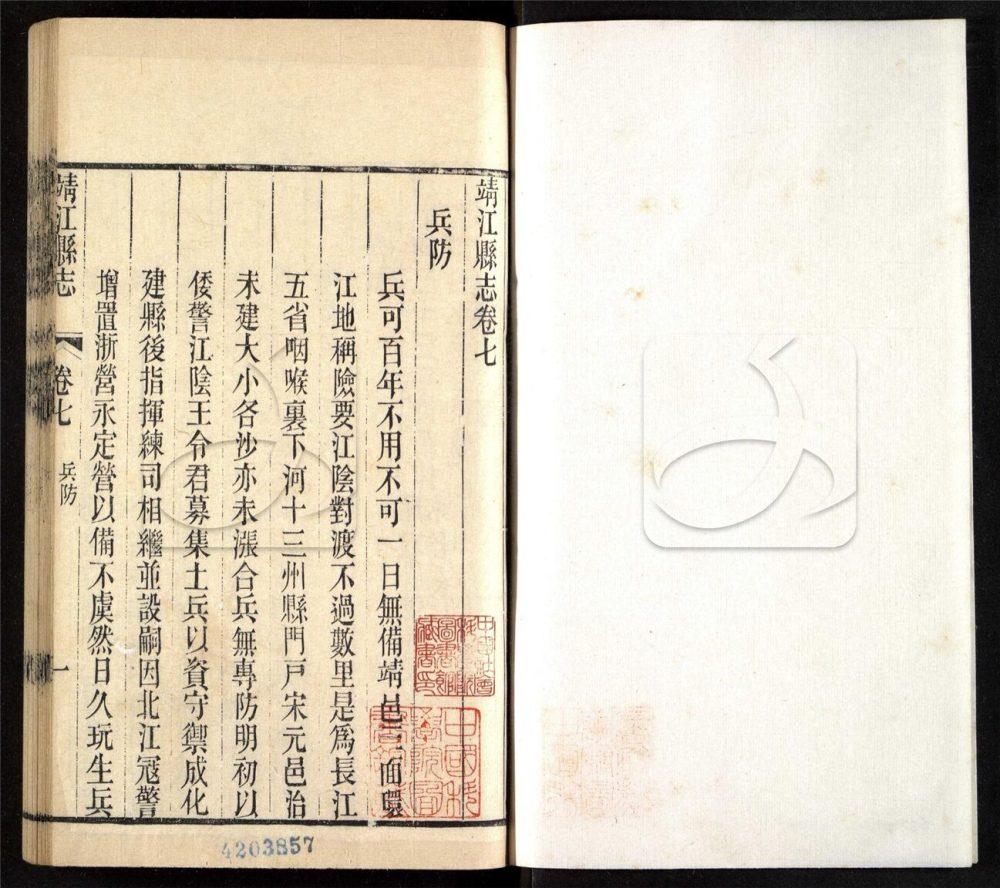 靖江縣志卷七
兵防
兵可百年不用不可一日無備靖邑三面環
江地稱險要江陰對渡不過數里是爲長江
五省咽喉裏下河十三州縣門戶宋元邑治
未建大小各沙亦未漲合兵無專防明初以
倭警江陰王令君募集土兵以資守禦成化
建縣後指揮練司相繼並設嗣因北江冦警
增置浙營永定營以備不虞然日久玩生兵
靖江縣志
卷七
兵防
一
中國科
學院圖
4203857